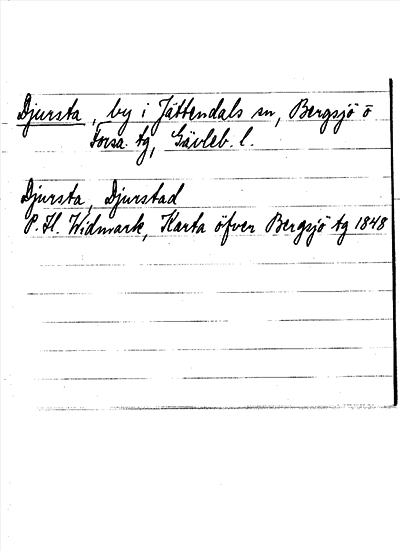 Djursta, by i Jättendals sn, Bergsjö o
Forsa tg, Gävleb. l.
Djursta, Djurstad
P. H. Widmark, Karta öfver Bergsjö tg 1848